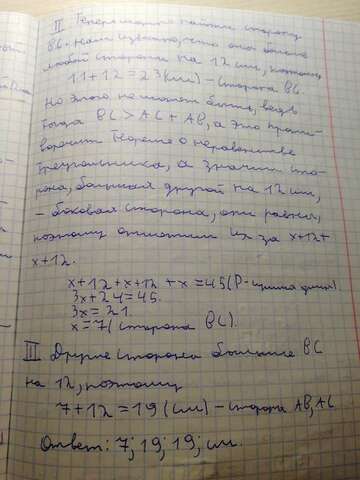 II Теперь можно найти сторону
BC. Нам известно, что она больше
любой стороны на 12 см, поэтому
11+12 = 23(см) – сторона BC
Но этого не может быть, ведь
тогда BC > AC + AB, а это проти-
воречит теореме о неравенстве
треугольника, а значит сто-
рона, большая другой на 12 см,
– боковая сторона, они равны,
поэтому их за x+12+
x+12.
x+12+x+12+x=45(P-
3x+24=45.
3x=21.
x=7( сторона BC).
III Другие стороны больше BC
на 12, поэтому
7+12=19(см) – сторона AB, AC
Ответ: 7; 19; 19; см.